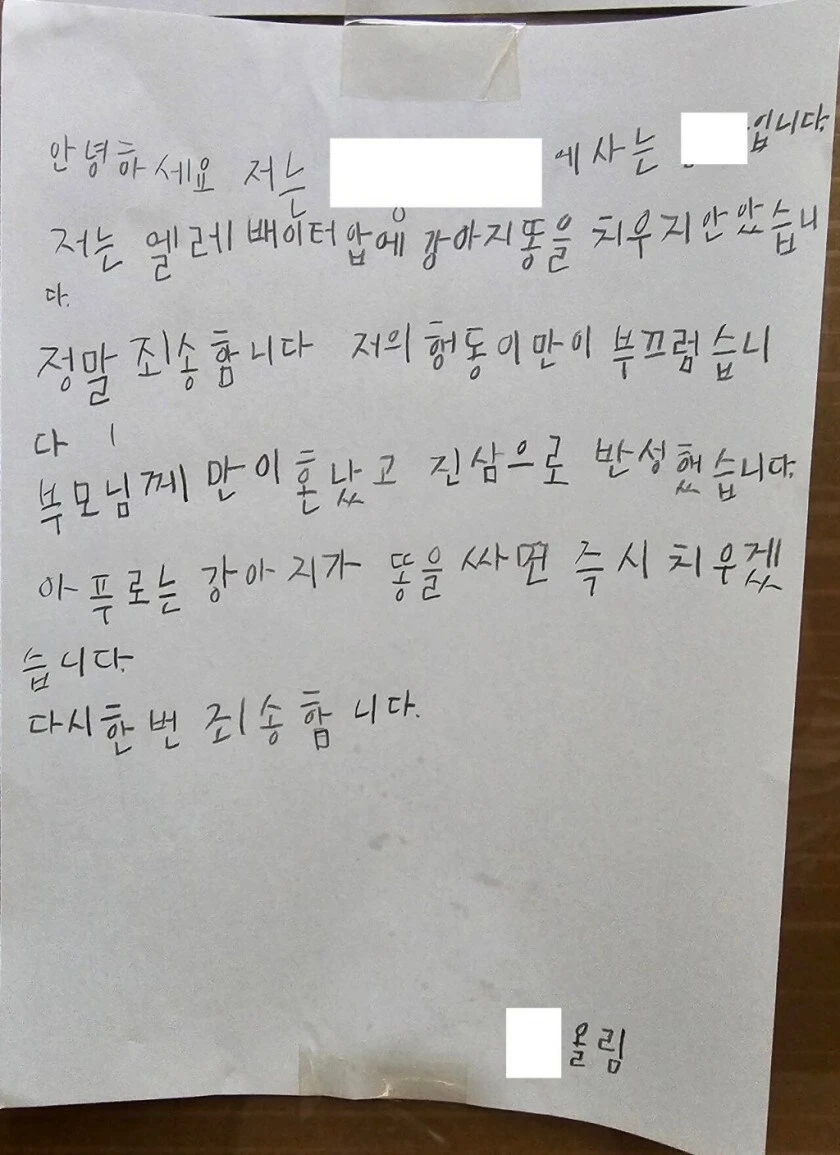 안녕하세요 저는 에사는 입니다.
저는 엘레베이터앞에 강아지똥을 치우지안았습니
다.
정말 죄송함니다 저의 행동이만이 부끄럼습니
다
부모님께 만이혼났고 진심으로 반성했습니다.
아푸로는 강아지가 똥을싸면 즉시 치우겠
습니다.
다시한번 죄송함니다.
올림